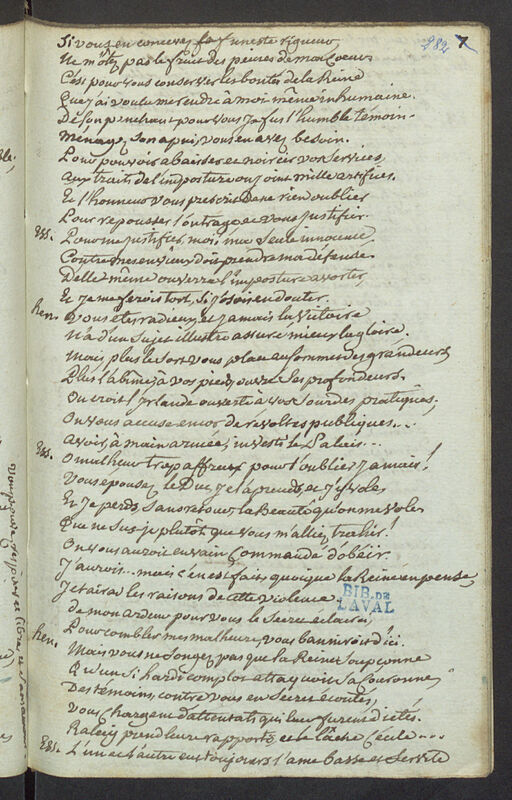 282 7
Si vous en concevez la funeste rigueur
Ne m'ôtez pas le fruit des peines de mon Coeur
C'est pour vous conserver les bontés de la Reine
Que j'ai voulu me rendre à moi même inhumaine.
De son penchant pour vous j'a fus l'humble témoin.
Ménagez son apui, vous en avez besoin.
Pour pouvoir abaisser et noircir vos services,
aux traits de l'imposture on joint mille artifices.
Et l'honneur vous prescrit de ne rien oublier
Pour repousser l'outrage et vous justifier.
Ess. Pour me justifier, moi! ma seule innocence,
Contre mes envieux doit prendre ma défense.
D'elle même on verra l'imposture avorter,
Et je me ferois tort, si j'osois en douter.
Hen. Vous etes radieux, et jamais la victoire
N'a d'un sujet illustre assuré mieux la gloire.
Mais plus le sort vous place au sommet des grandeurs
Plus l'abîme à vos pieds ouvre ses profondeurs.
On croit l'Irlande ouverte à vos sourdes pratiques,
On vous accuse encor de révoltes publiques...
avoir, à main armée, investi le Palais...
Ess. O malheur trop affreux pour l'oublier jamais!
Vous epousez le Duc, je l'aprends, et j'y vole
Et je perds, sans retour la Beauté qu'on me vole
Que ne sus-je plutôt que vous m'alliez trahir!
On vous auroit en vain Commandé d'obéir.
J'aurois... mais c'en est fait; quoique la Reine en pense,
Je tairai les raisons de cette violence
de mon ardeur pour vous le secret éclairci,
Pour combler mes malheurs, vous banniroit d'ici.
Hen. Mais vous ne songez pas que la Reine soupçonne
Qu'un si hardi complot attaquoit sa Couronne;
Des témoins, contre vous en secret écoutés,
Vous chargent d'attentats qui leur furent dictés.
Raleig prend leurs rapports, et le lâche Cecile....
Ess. L'un et l'autre eut toujours l'ame basse et servile
BIB. DE
LAVAL